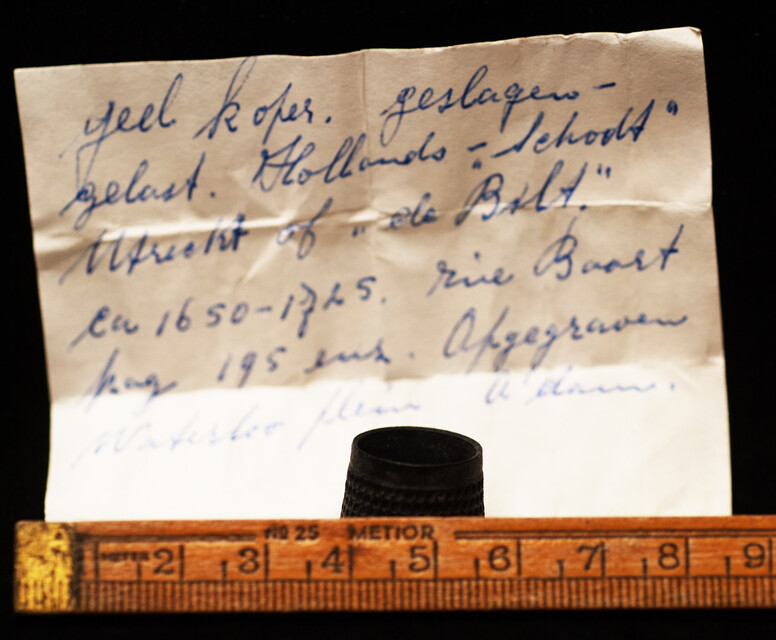 geel koper. geslagen -
gelast. Hollands - "Schodt"
Utrecht of "de Bilt."
ca 1650-1725. zie Baart
pag 195 enz. Opgegraven
Waterloo plein A'dam.
No 25 METIOR
METER 2 3 4 5 6 7 8 9